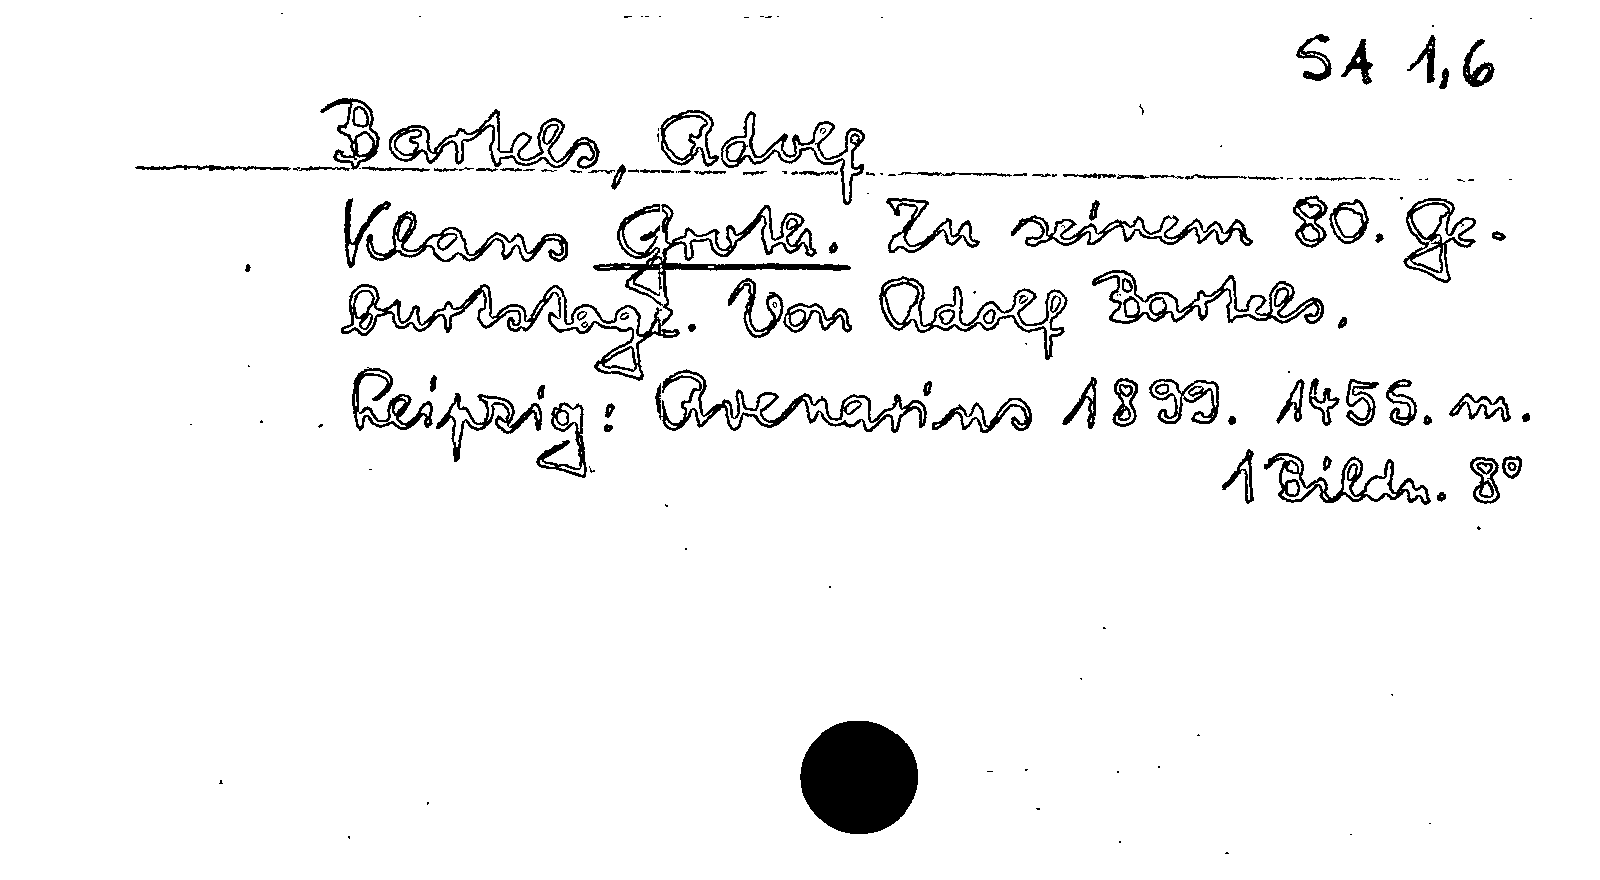 SA 1,6
Bartels, Adolf
Klaus Groth. Zu seinem 80. Ge-
burtstage. Von Adolf Bartels.
Leipzig: Avenarius 1899. 145 S. m.
1 Bildn. 8°